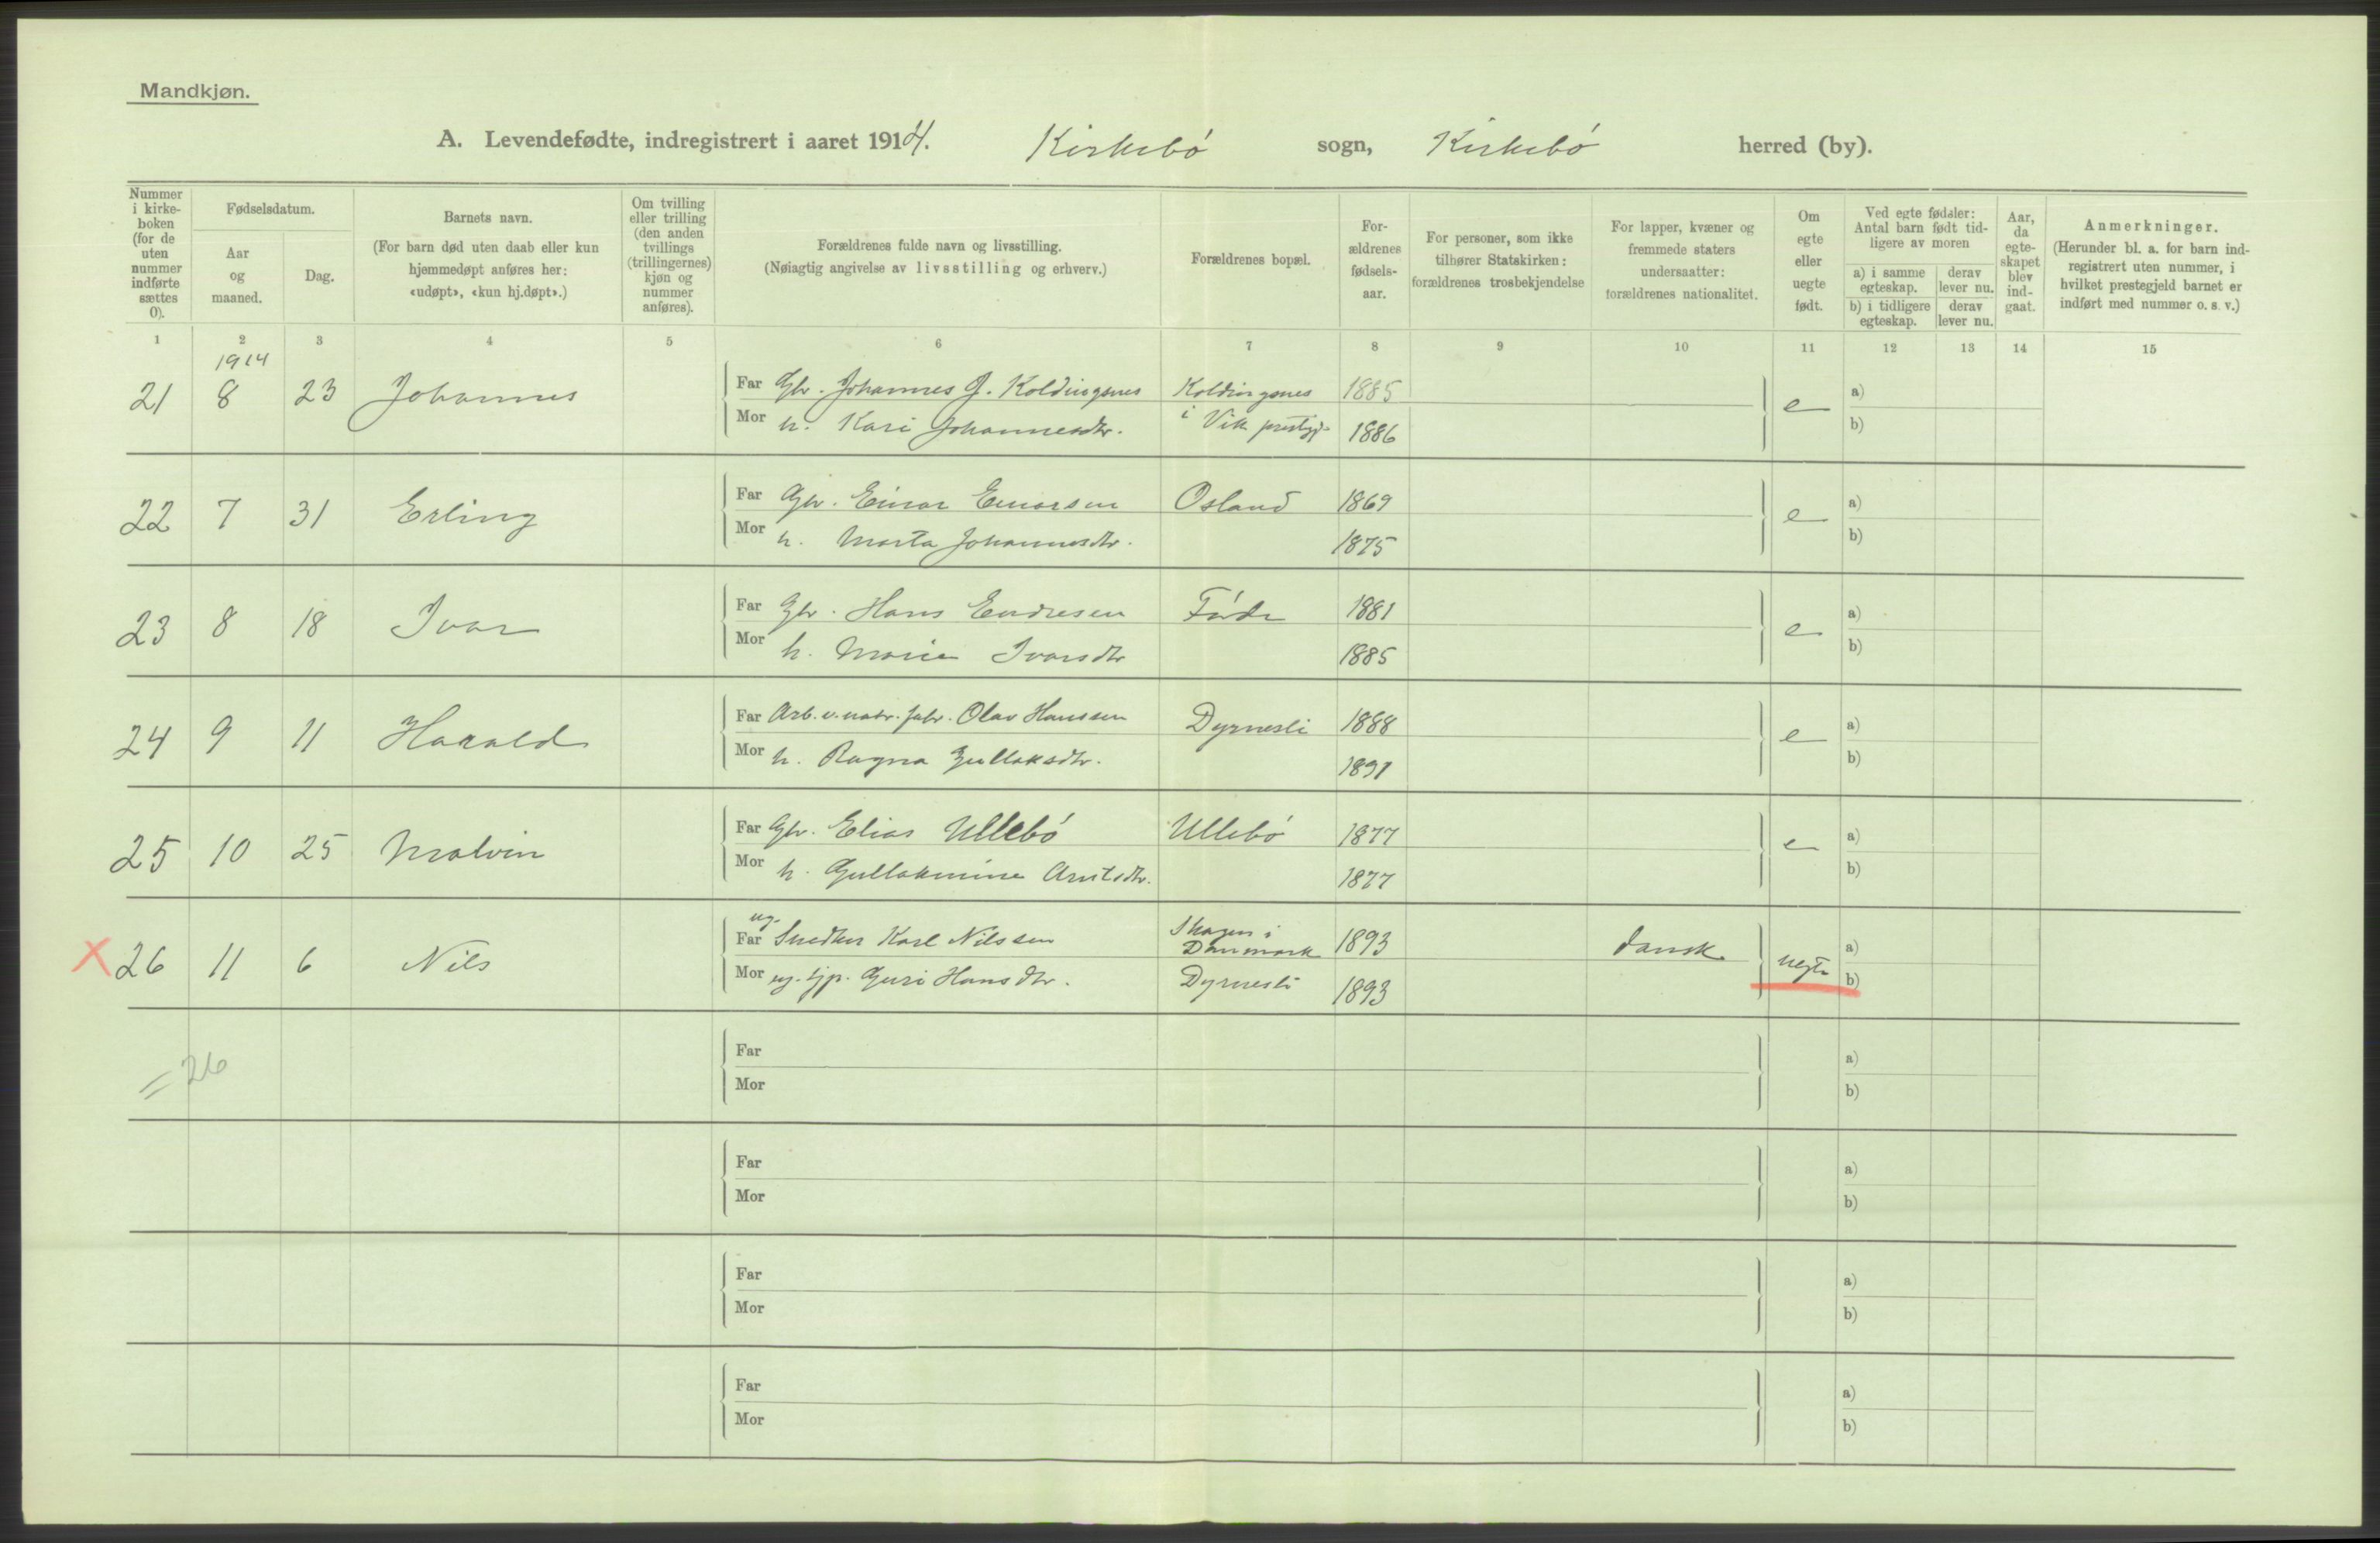 Mandkjøn.
A. Levendefødte, indregistrert i aaret 1914. Kirkebö sogn, Kirkebö herred (by).
Nummer i kirke-boken (for de uten nummer indførte sættes 0).
Fødselsdatum.
Aar og maaned.
Dag.
Barnets navn.
(For barn død uten daab eller kun hjemmedøpt anføres her: «udøpt», «kun hj.døpt».)
Om tvilling eller trilling (den anden tvillings (trillingernes) kjøn og nummer anføres).
Forældrenes fulde navn og livsstilling.
(Nøiagtig angivelse av livsstilling og erhverv.)
Forældrenes bopæl.
For-ældrenes fødsels-aar.
For personer, som ikke tilhører Statskirken: forældrenes trosbekjendelse
For lapper, kvæner og fremmede staters undersaatter: forældrenes nationalitet.
Om egte eller uegte født.
Ved egte fødsler: Antal barn født tid-ligere av moren
a) i samme egteskap. derav lever nu.
b) i tidligere egteskap. derav lever nu.
Aar, da egte-skapet blev ind-gaat.
Anmerkninger.
(Herunder bl. a. for barn ind-registrert uten nummer, i hvilket prestegjeld barnet er indført med nummer o. s. v.)
1 2 3 4 5 6 7 8 9 10 11 12 13 14 15
1914
21 8 23 Johannes Far Gbr. Johannes J. Koldingsnes Koldingsnes 1885 e a)
Mor h. Kari Johannesdtr. i Vik prestgj. 1886 b)
22 7 31 Erling Far Gbr. Einar Einarsen Osland 1869 e a)
Mor h. Marta Johannesdtr. 1875 b)
23 8 18 Ivar Far Gbr. Hans Endresen 1881 e a)
Mor h. Marie Ivarsdtr 1885 b)
24 9 11 Harald Far Arb. v. fabr. Olav Hanssen Dyrnesli 1888 e a)
Mor h. Ragna Gullaksdtr. 1891 b)
25 10 25 Malvin Far Gbr. Elias Ullebö Ullebö 1877 e a)
Mor h. Gullakmine Arntsdtr. 1877 b)
X 26 11 6 Nils Far ug. Snedker Karl Nilssen Skagen i Danmark 1893 dansk uegte a)
Mor ug. tjp. Guri Hansdtr. Dyrnesli 1893 b)
= 26 Far a)
Mor b)
Far a)
Mor b)
Far a)
Mor b)
Far a)
Mor b)